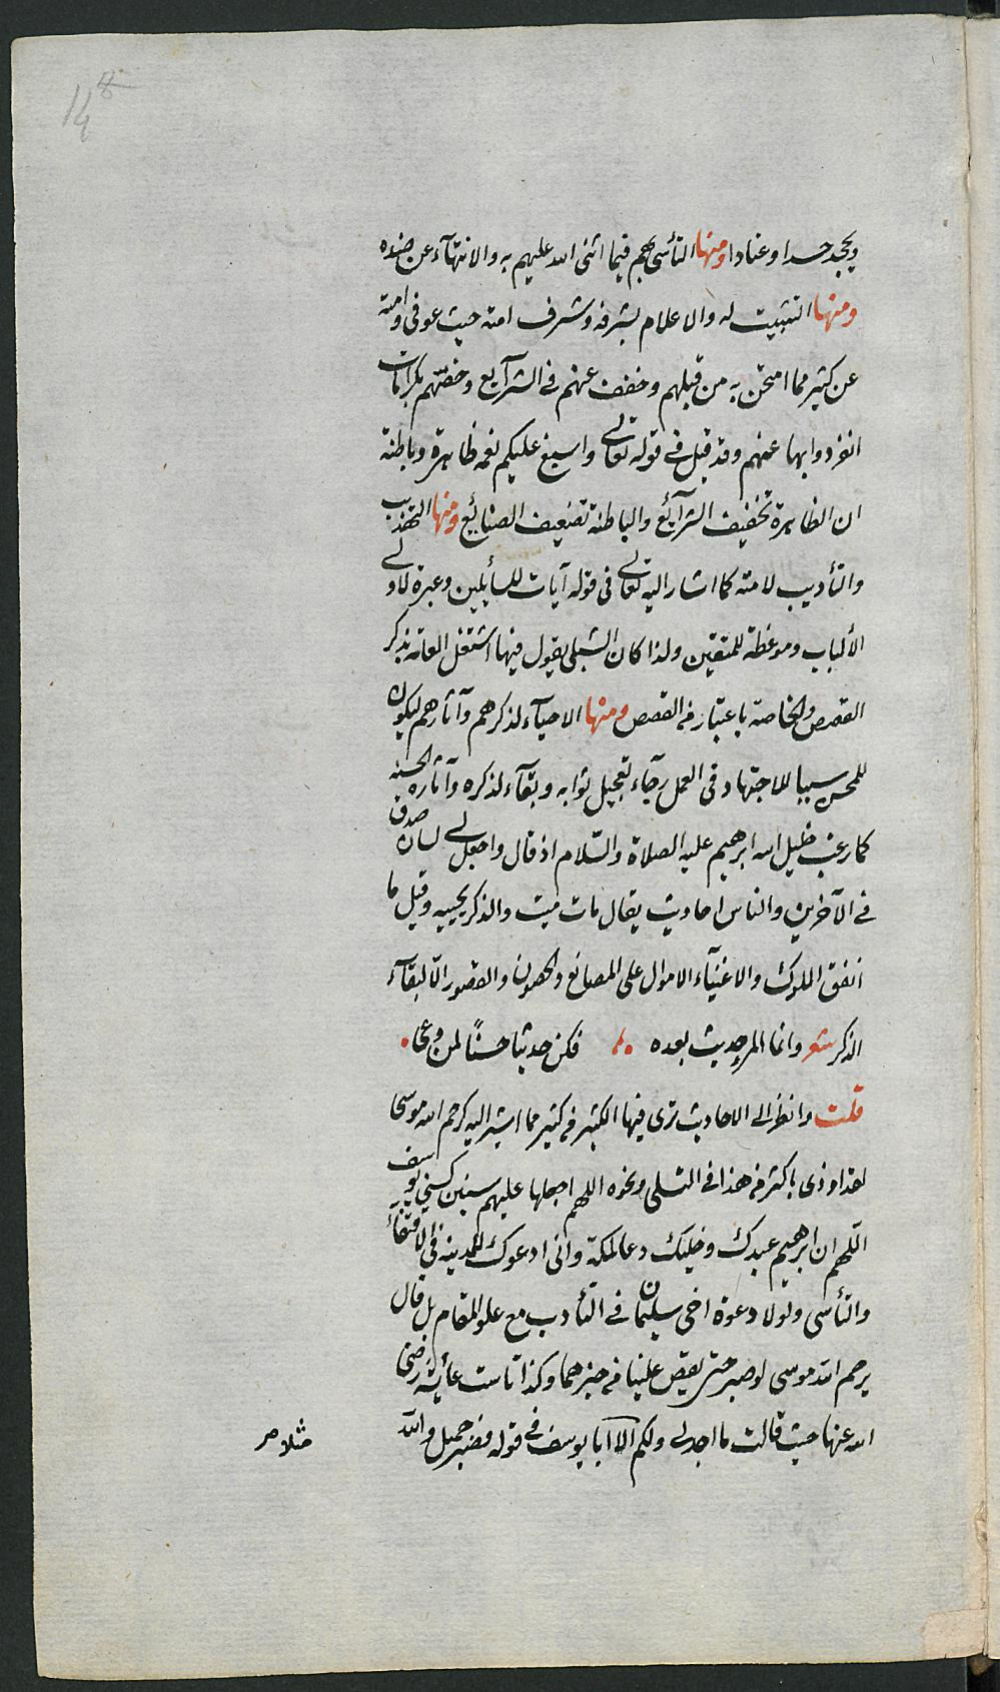 14 8
ويجحد حسدا وعنادا ومنها التأسى بهم فيما اثنى الله عليهم به والانتهآء عن ضده
ومنها التثبيت له والاعلام بشرفه وشرف امته حيث عوفى وامته
عن كثير مما امتحن به من قبلهم وخفف عنهم فى الشرآيع وخصّهم بكرامات
انفردوا بها عنهم وقد قيل فى قوله تعالى واسبغ عليكم نعمه ظاهرة وباطنة
ان الظاهرة تخفيف الشرآئع والباطنة تضعيف الصنائع ومنها التهذيب
والتأديب لامته كما اشار اليه تعالى فى قوله آيات للسأيلين وعبرة لاولى
الألباب وموعظة للمتقين ولذا كان الشبلى يقول فيها اشتغل العامة بذكر
القصص والخاصة باعتبار من القصص ومنها الاحيآء لذكرهم وآثارهم ليكون
للمحسن سببا للاجتهاد فى العمل رجآء تعجيل ثوابه وبقآء لذكره وآثاره الحسنه
كما رغب خليل الله ابرهيم عليه الصلاة والسّلام اذ قال واجعل لى لسان صدق
فى الآخرين والناس احاديث يقال مات ميت والذكر يحييه وقيل ما
انفق الملوك والاغنيآء الاموال على المصانع والحصون والقصور الّا لبقآء
الذكر شعر وانما المرء حديث بعده فكن حديثا حسنًا لمن وعا
قلت وانظر الى الاحاديث ترى فيها الكثير من كثير مما اشير اليه كرحم الله موسى
لقد اوذى باكثر من هذا فى التسلى ونحوه اللهم اجعلها عليهم سنين كسنى يوسف
اللّهم ان ابرهيم عبدك وخليلك دعا لمكة وانى ادعوك للمدينة فى الاقتفآء
والتأسى ولولا دعوة اخى سليمان فى التأدب مع علو المقام بل قال
يرحم الله موسى لو صبر حتى يقص علينا من خبرهما وكذا تاست عائشة رضى
الله عنها حيث قالت ما اجد لى ولكم الا ابا يوسف فى قوله فصبر جميل والله